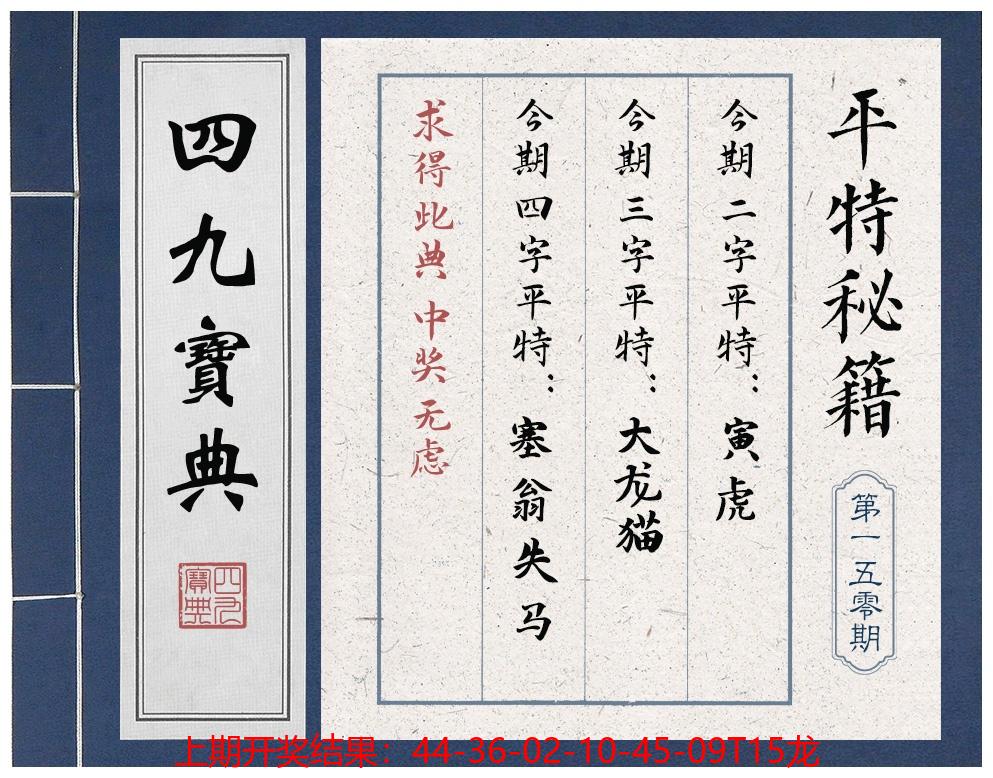 平特秘籍
第一五零期
今期二字平特：寅虎
今期三字平特：大龙猫
今期四字平特：塞翁失马
求得此典 中奖无虑
四九寶典
四九寶典
上期开奖结果：44-36-02-10-45-09T15龙